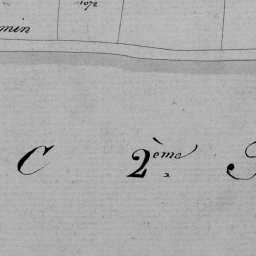 1072
min
C 2ème